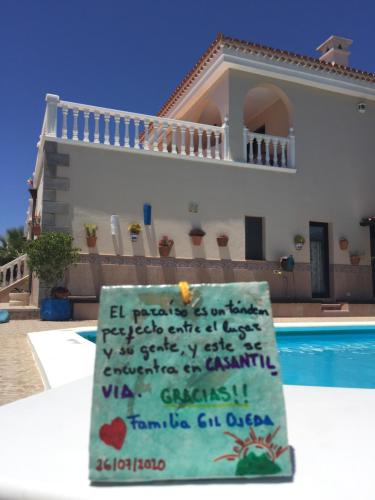 El paraíso es un tándem
perfecto entre el lugar
y su gente, y este se
encuentra en CASANTIL
VIA. GRACIAS!!
Familia GIL OJEDA
26/07/2020